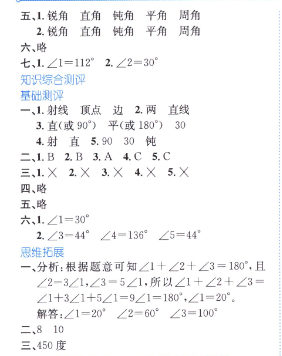 五、1. 锐角 直角 钝角 平角 周角
2. 锐角 直角 钝角 平角 周角
六、略
七、1. ∠1=112° 2. ∠2=30°
知识综合测评
基础测评
一、1. 射线 顶点 边 2. 两 直线
3. 直(或 90°) 平(或 180°) 30
4. 射 直 5. 90 30 钝
二、1. B 2. B 3. A 4. C 5. C
三、1. × 2. × 3. × 4. × 5. ×
四、略
五、略
六、1. ∠1=30°
2. ∠3=44° ∠4=136° ∠5=44°
思维拓展
一、分析:根据题意可知∠1+∠2+∠3=180°,且
∠2=3∠1,∠3=5∠1,所以∠1+∠2+∠3=
∠1+3∠1+5∠1=9∠1=180°,∠1=20°。
解答:∠1=20° ∠2=60° ∠3=100°
二、8 10
三、450 度